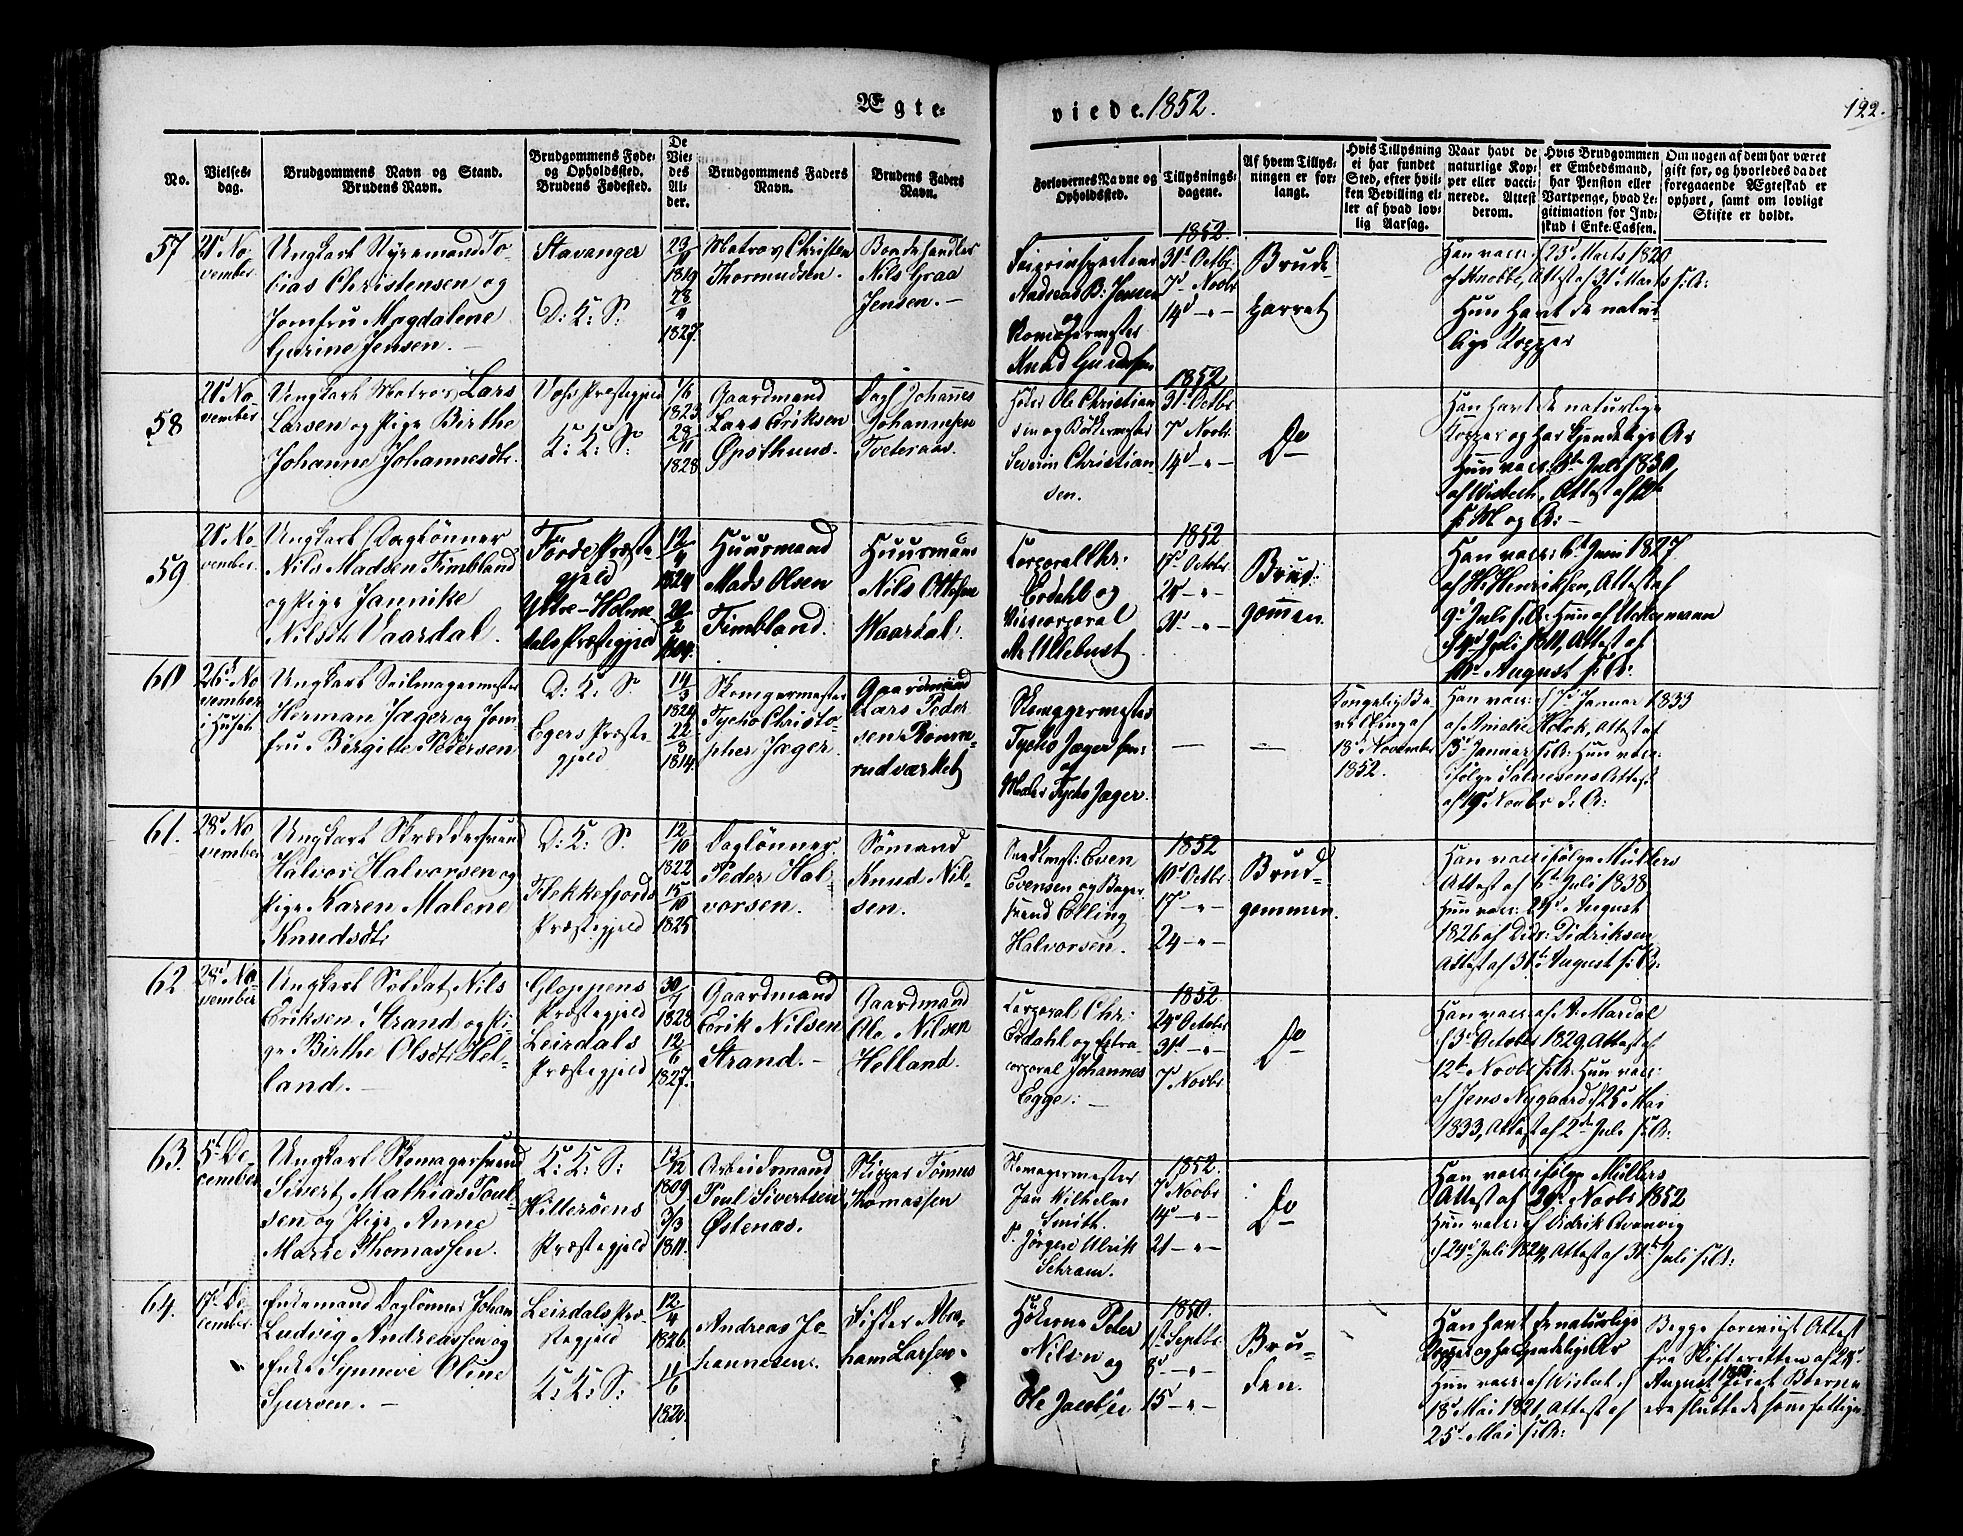 Ægte-
viede. 1852.
122.
No.
Vielses-
dag.
Brudgommens Navn og Stand.
Brudens Navn.
Brudgommens Føde-
og Opholdssted.
Brudens Fødested.
De
Vie-
des
Al-
der.
Brudgommens Faders
Navn.
Brudens Faders
Navn.
Forlovernes Navne og
Opholdssted.
Tillysnings-
dagene.
Af hvem Tillys-
ningen er for-
langt.
Hvis Tillysning
ei har fundet
Sted, efter hvil-
ken Bevilling el-
ler af hvad lov-
lig Aarsag.
Naar havt de
naturlige Kop-
per eller vacci-
nerede. Attest
derom.
Hvis Brudgommen
er Embedsmand,
har Pension eller
Vartpenge, hvad Le-
gitimation for Ind-
skud i Enke-Cassen.
Om nogen af dem har været
gift for, og hvorledes da det
foregaaende Ægteskab er
ophørt, samt om lovligt
Skifte er holdt.
57
21d No-
vember.
Ungkarl Styrmand To-
bias Christensen og
Jomfru Magdalene
Gurine Jensen.
Stavanger
D: K: S:
23/9
1819
28/4
1827.
Matros Christen
Thormudsen.
Nils Graa
Jensen. —
Andreas B: Jensen
og
Skomagermester
1852
31d Octbr
7d Novbr
14d — " —
Brude-
parret
Han vacc: 23d Marts 1820
af Knobbe, Attest af 31d Marts s: A:
Hun havt de natur-
lige Kopper
58
21d No-
vember
Ungkarl Matros Lars
Larsen og Pige Birthe
Johanne Johannesdtr
Vos's Præstegjeld
K: K: S:
1/6
1823
28/11
1828
Gaardmand
Lars Eriksen
Opsthuus.
Johannes
Johannesen
Tveteraas.
Ole Christian
sen og Bødkermester
Severin Christian-
sen.
1852
31d Octbr
7d Novbr
14d — " —
Do
Han havt de naturlige
Kopper og har kjendelige Ar
Hun vacc: Juli 1830,
af Wisbech, Attest af
s: M og A: —
59
21d No-
vember.
Ungkarl Daglønner
Nils Madsen Fimbland
og Pige Jannike
Nilsdtr Vaardal.
Førde Præste-
gjeld
Yttre-Holme-
dals Præstegjeld
12/4
1824
20/2
Huusmand
Mads Olsen
Fimbland.
Huusmand
Nils Ottesen
Waardal.
Corporal Chr:
Erdahl og
Vicecorporal
1852
17d Octbr
24 — " —
31d — " —
Brud-
gommen.
Han vacc: 6t Juni 1827
af H: Henriksen, Attest af
9d Juli s: A: Hun af Ackermann
Juli 1811, Attest af
August s: A:
60
26d No-
vember
i Huset
Ungkarl Seilmagermester
Herman Jæger og Jom-
fru Birgitte Pedersen
D: K: S:
Egers Præste-
gjeld
14/3
1824
22/8
1814.
Skomagermester
Tycho Christo-
pher Jæger.
Gaardmand
Lars Peder-
sen
Skomagermester
Tycho Jæger sen:
og
Tycho Jæger.
—
—
Kongelig Be-
villing af
18d November
1852.
Han vacc: 17d Januar 1833
af Amalie Holck, Attest af
3d Januar s: A: Hun vacc:
ifølge Salvesens Attest
af 19d Novbr d: A:
61.
28d No-
vember
Ungkarl Skræddersvend
Halvor Halvorsen og
Pige Karen Malene
Knudsdtr
D: K: S:
Flekkefjords
Præstegjeld
12/10
1822
15/10
1825
Daglønner
Peder Hal-
vorsen.
Sømand
Knud Nil-
sen.
Even
Evensen og Bager
svend Elling
Halvorsen.
1852
10d Octbr
17d — " —
24 — " —
Brud-
gommen.
Han vacc: ifølge Müllers
Attest af 6t Juli 1838
Hun vacc: 24d August
1826 af Didr: Didriksen
Attest af 31t August s: A:
62
28d No-
vember
Ungkarl Soldat Nils
Eriksen Strand og Pi-
ge Birthe Olsdtr Hel-
land. —
Gloppens
Præstegjeld
Leirdals
Præstegjeld
30/7
1828
12/6
1827.
Gaardmand
Erik Nilsen
Strand. —
Gaardmand
Ole Nilsen
Helland.
Corporal Chr:
Erdahl og Extra-
corporal Johannes
Egge: —
1852
24d Octbr
31t — " —
7d Novbr
Do
Han vacc: af A: Mardal
13d October 1829 Attest af
12t Novbr s: A: Hun vacc:
af Jens Nygaard 25d Mai
1833, Attest af 2d Juli s: A:
63.
5t De-
cember
Ungkarl Skomagersvend
Sivert Mathias Poul-
sen og Pige Anne
Marie Thomassen.
K: K: S:
Hitterøens
Præstegjeld
1809
3/3
1811.
Arbeidsmand
Poul Sivertsen
Østenas.
Skipper Tønnes
Thomassen
Skomagermester
Jan Wilhelm
Smith.
Jørgen Ulrik
Schram.
1852.
7d Novbr
14d — " —
21 — " —
Do
Han vacc: ifølge Müllers
Attest af 24d Novbr 1852
Hun vacc: af Didrik
24d Juli 1824, Attest af 31t Juli s: A:
64.
17d De-
cember
Enkemand Daglønner Johan
Ludvig Andreassen og
Enke Synneve Oline
Sjursen. —
Leirdals Præ-
stegjeld
K: K: S:
12/4
1826
11/6
1820.
Andreas Jo-
hannesen.
Fisker Abra-
ham Larsen.
Hökerne Peter
Nilsen og
Ole Jacobsen
1850.
1t Septbr
8d — " —
15 — " —
Bru-
den.
Han havt de naturlige
Kopper og har kjendelige Ar
Hun vacc: af Wisbech
18d Mai 1821, Attest af
25d Mai s: A:
Begge foreviist Attest
fra Skifteretten af 28d
August 1850
ere sluttede som fattige